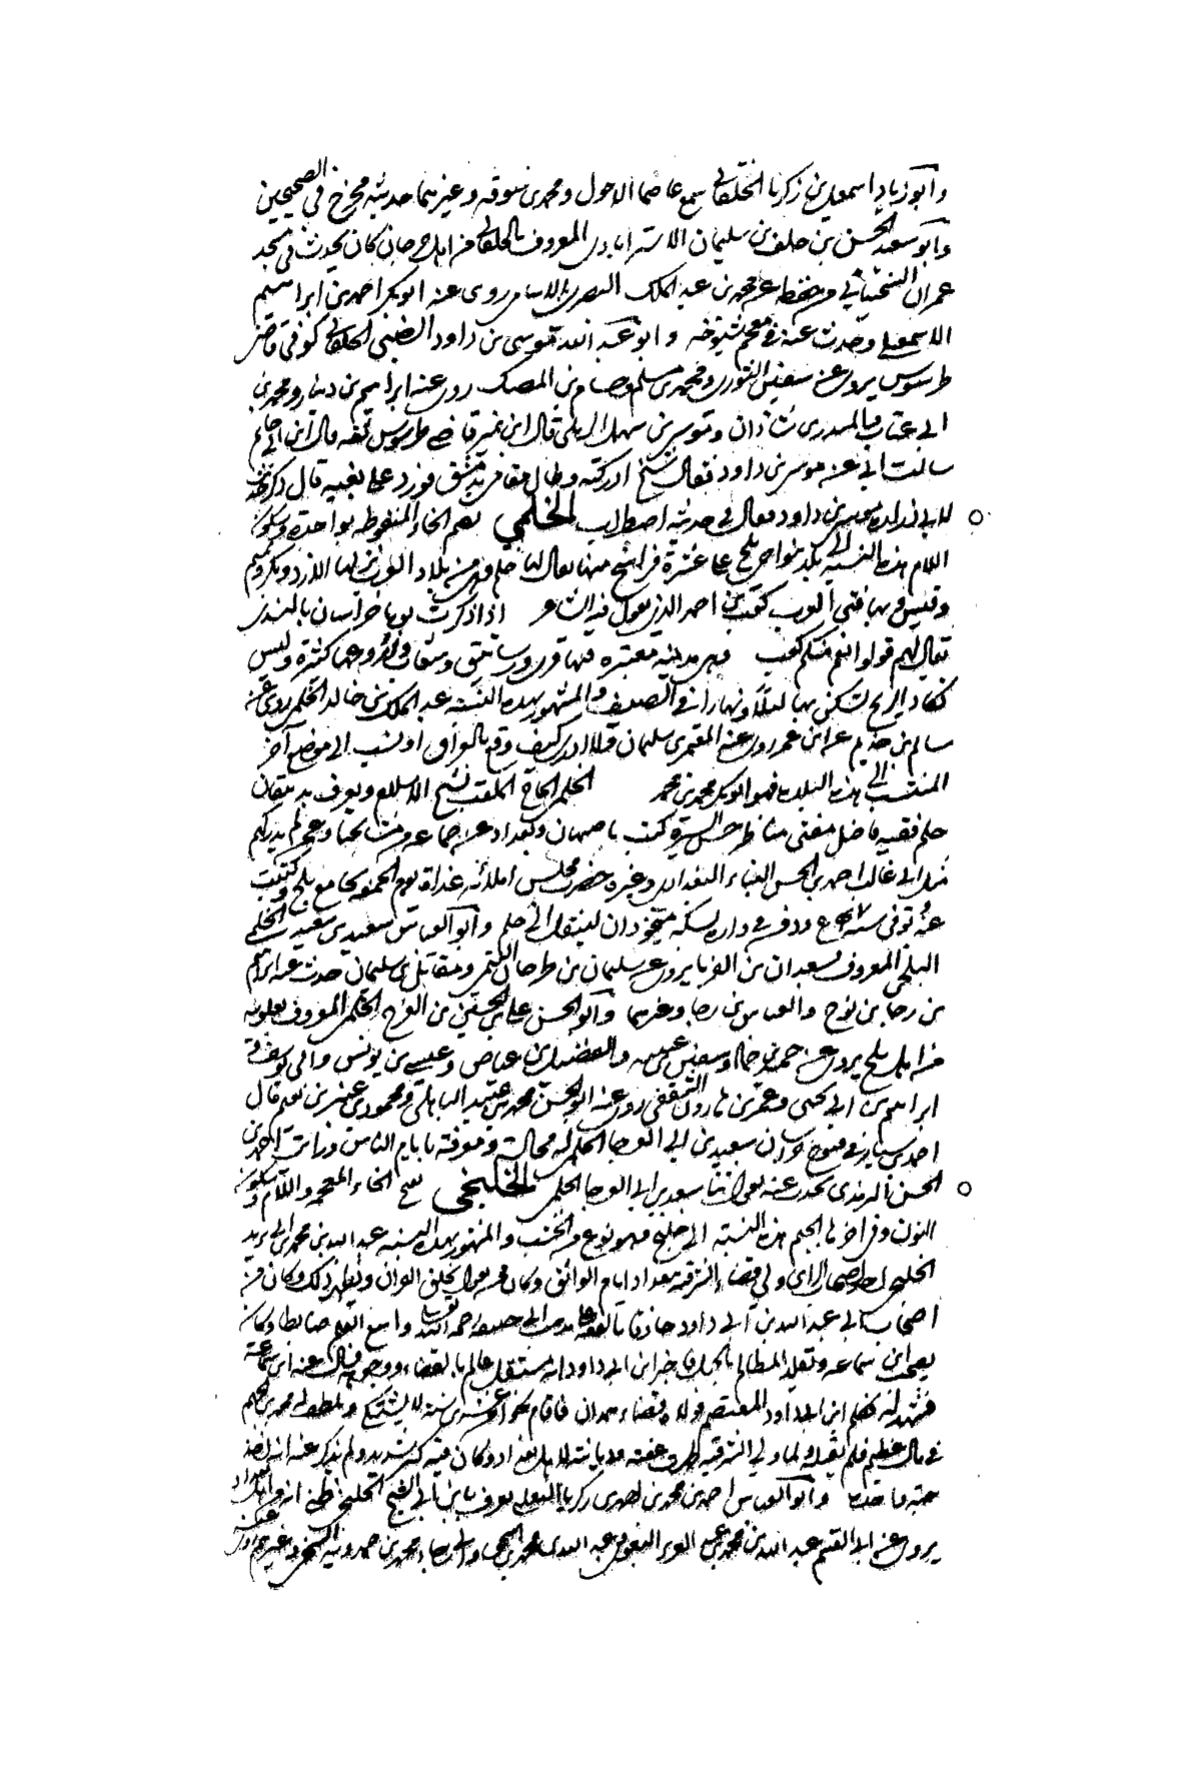 وابو زياد اسمعيل بن زكريا الخلقاني سمع عاصما الاحول ومحمد بن سوقه وغيرهما حديثه مخرج في الصحيحين
وابو سعد الحسن بن خلف بن سليمان الاستراباذي المعروف بالخلقاني من اهل جرجان كان يحدث في مسجد
عمران السختياني من حفظه عن محمد بن عبد الملك البصري بالاسامي روى عنه ابو بكر احمد بن ابراهيم
الاسمعيلي وحدث عنه في معجم شيوخه وابو عبد الله موسى بن داود الضبي الخلقاني كوفي قاضي
طرسوس يروي عن سفيان الثوري ومحمد بن مسلم وحسام بن المصك روى عنه ابراهيم بن دينار ومحمد بن
ابي عتاب والمنذر بن شاذان وموسى بن سهل الرملي قال ابن نمير قاضي طرسوس ثقه قال ابن ابي حاتم
سالت ابي عن موسى بن داود فقال شيخ ادركته وطال مقامي بدمشق فورد علي نعيه قال ذكرت
لابي موسى بن داود فقال في حديثه اضطراب الخلمي بضم الخاء المنقوطه بواحدة وسكون
اللام هذه النسبة الى بلد بنواحي بلخ على عشرة فراسخ منها يقال لها خلم وهي من بلاد العرب نزلها الازد وبكر وتميم
وقيس وبها فتى العرب كعب بن احمد الذي يقول فيه الشاعر اذا ذكرت يوما خراسان بالندى
تعالى لهم قولوا نعم منكم كعب وهي مدينة معتبره فيها قرى ورساتيق وشعاب وزروعها كثيرة وليس
تكاد الريح تسكن بها ليلا ونهارا في الصيف والمشهور بهذه النسبة عبد الملك بن خالد الخلمي يروي عن
سالم بن حذيم عن ابن عمر روى عنه المعتمر بن سليمان فلا ادري كيف وقع بالعراق او نسب الى موضع آخر
المنتسب الى هذه البلدة فهو ابو بكر محمد بن محمد الخلمي الحاج الملقب شيخ الاسلام ويعرف بدهقان
خلم فقيه فاضل مفتي مناظر حسن السيرة كتب باصبهان وبغداد عن جماعة من مشايخنا وعمن لم ندركهم
مثل ابي غالب احمد بن الحسن البناء البغدادي وغيره حضرت مجلس املائه غداة يوم الجمعة بجامع بلخ وكتبت
عنه توفي سنة ودفن في داره بسكة ان لينقل الى خلم وابو العباس سعيد بن سعيد الخلمي
البلخي المعروف بسعدان من القرنا يروي عن سليمان بن طرخان التيمي ومقاتل بن سليمان حدث عنه ابراهيم
بن رجا بن نوح والعباس بن رجا وغيرهما وابو الحسن علي بن الحسين بن الفرج الخلمي المعروف بعلويه
من اهل بلخ يروي عن حمزة وسفين بن عيينه والفضيل بن عياض وعيسى بن يونس وابي يوسف
ابراهيم بن ابي يحيى وعمر بن هارون الثقفي روى عنه ابو الحسن محمد بن عقيد الباهلي ومحمود بن عنبر بن نعيم قال
احمد بن سيار في فتوح خراسان سعيد بن ابي العوجا الخلمي له مجالسة ومعرفة بايام الناس ورايت احمد بن
الحسن الترمذي يحدث عنه يقول انبأنا سعيد بن ابي العوجا الخلمي الخلنجي بفتح الخاء المعجمه واللام وسكون
النون وفي اخرها الجيم هذه النسبة الى خلنج وهو نوع من الخشب والمشهور بهذه النسبة عبد الله بن محمد بن ابي يزيد
الخلنجي احد اصحاب الراي ولي قضاء الشرقيه ببغداد ايام الواثق وكان ممن يقول بخلق القران ويظهر ذلك وكان من
اصحاب ابي عبد الله بن ابي داود حاذقا بالفقه على مذهب ابي حنيفه رحمه الله واسع العلم ضابطا وكان
يصحب ابن سماعه وتقلد المظالم بالجبل فاخبر ابن ابي داود انه مستقل عالم بالقضاء ووجوهه فسال عنه ابن سماعة
فشهد له فكلم ابن ابي داود المعتصم فولاه قضاء همدان فاقام نحوا من عشرين سنة لا يشتكى وتلطف له محمد بن الجهم
في مال عظيم فلم يقبله ولما ولي الشرقيه ظهرت عفته وديانته لاهل بغداد وكان فيه كبر شديد ولم يذكر عنه انه اخذ
حبة فما فوقها وابو العباس احمد بن محمد بن احمد بن زكريا التغلبي يعرف بابن ابي الفتح الخلنجي اظن انه من اهل بغداد
يروي عن ابي القسم عبد الله بن محمد بن عبد العزيز البغوي وعبد الله بن محمد بن الحجاج وابي رجاء محمد بن حمدويه السنجي وغيرهم روى عنه